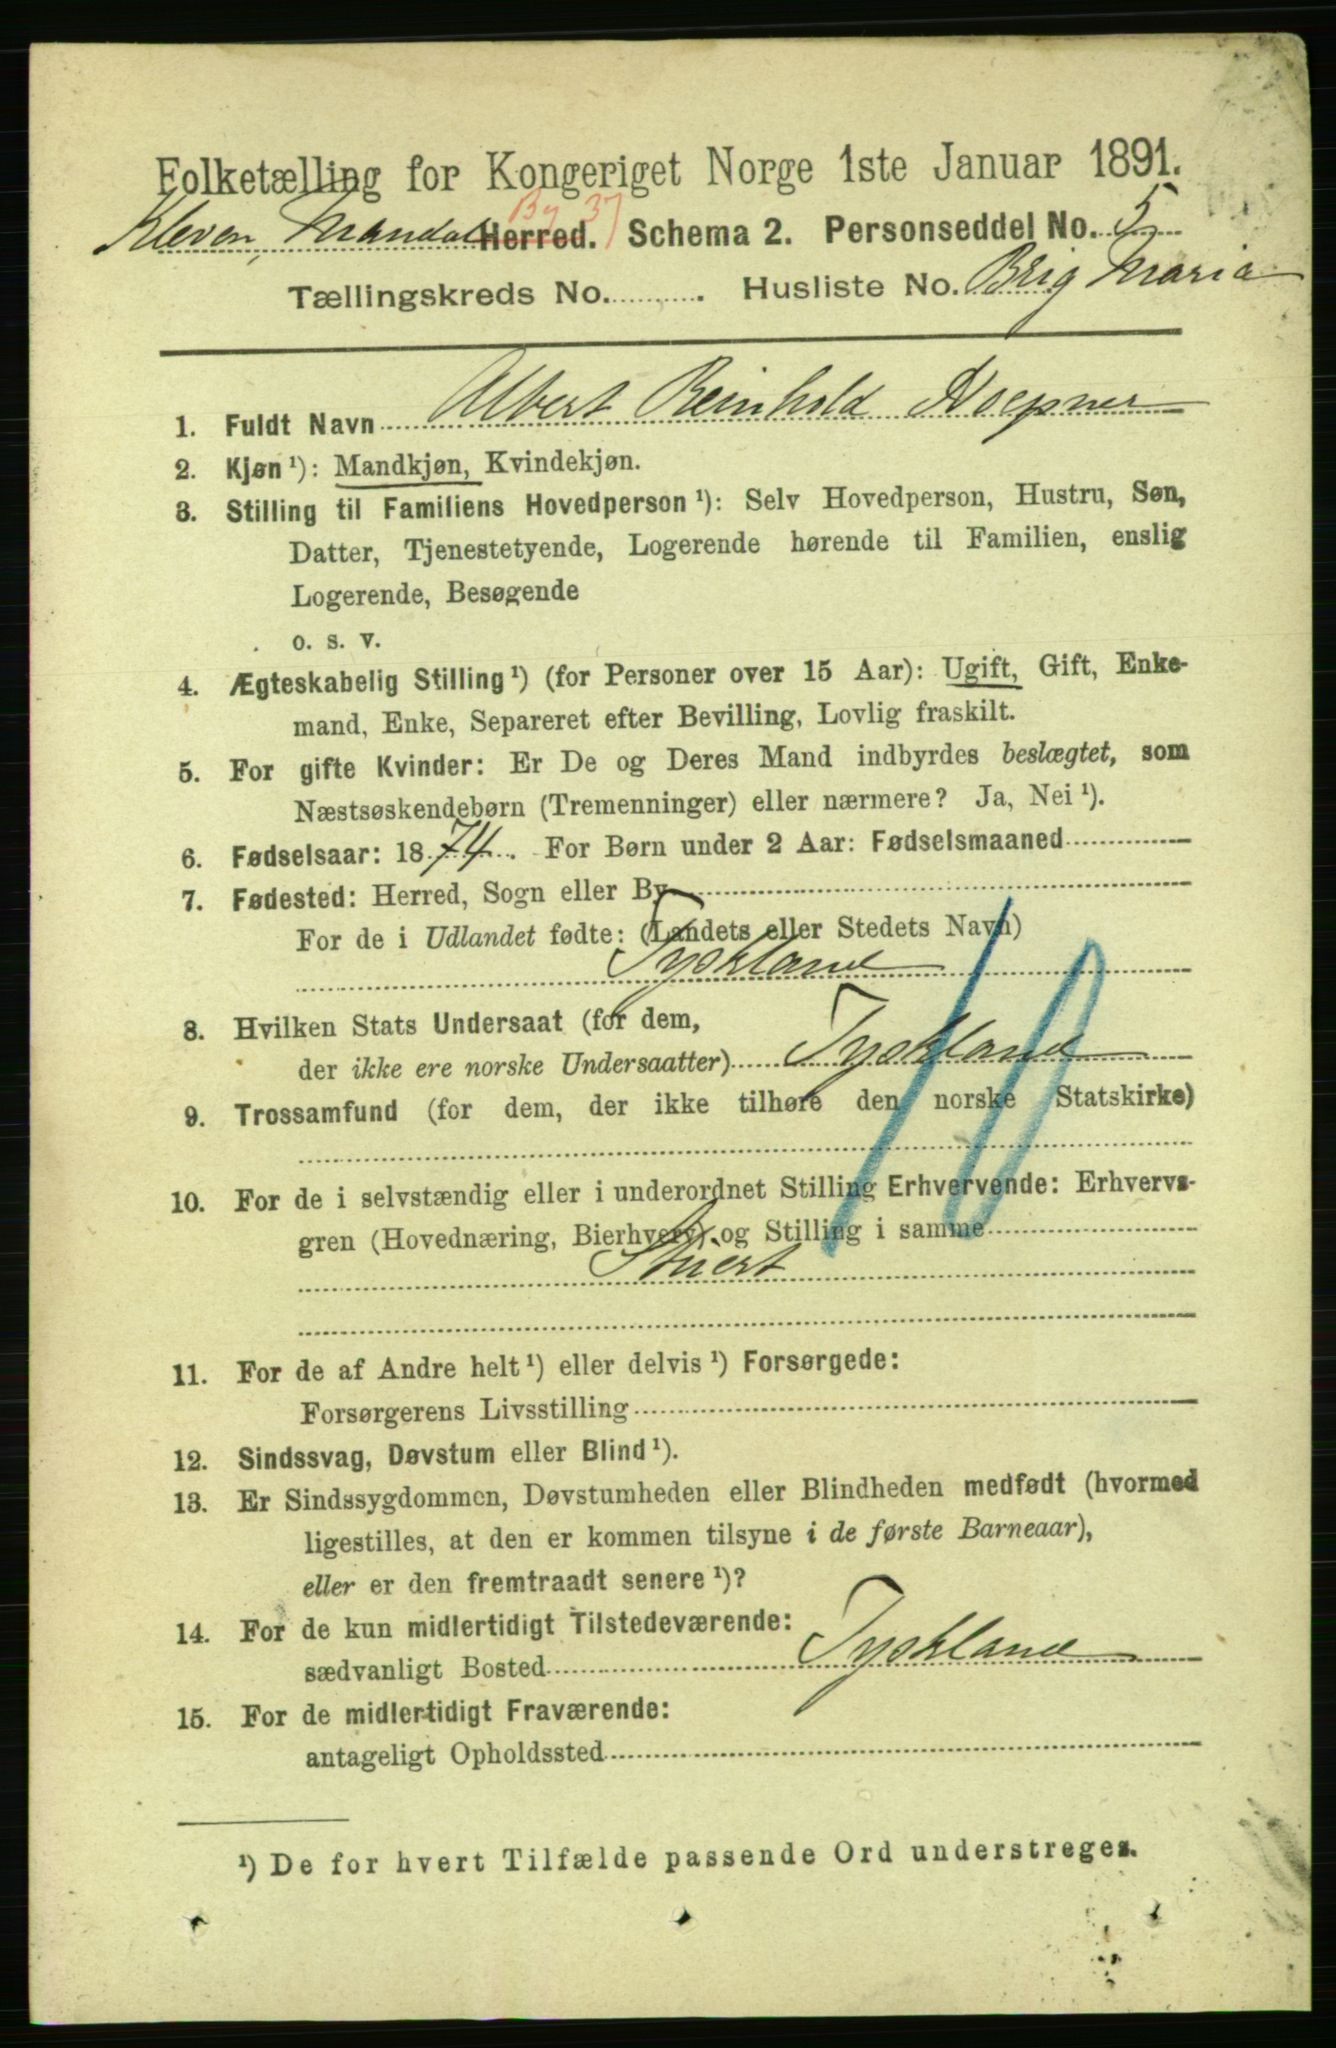 Folketælling for Kongeriget Norge 1ste Januar 1891.
By 37
Kleven, Mandal Herred. Schema 2. Personseddel No. 5
Tællingskreds No. . Husliste No. Brig Maria
1. Fuldt Navn Albert Reinhold
2. Kjøn ¹): Mandkjøn, Kvindekjøn.
3. Stilling til Familiens Hovedperson ¹): Selv Hovedperson, Hustru, Søn,
Datter, Tjenestetyende, Logerende hørende til Familien, enslig
Logerende, Besøgende
o. s. v.
4. Ægteskabelig Stilling ¹) (for Personer over 15 Aar): Ugift, Gift, Enke-
mand, Enke, Separeret efter Bevilling, Lovlig fraskilt.
5. For gifte Kvinder: Er De og Deres Mand indbyrdes beslægtet, som
Næstsøskendebørn (Tremenninger) eller nærmere? Ja, Nei ¹).
6. Fødselsaar: 1874. For Børn under 2 Aar: Fødselsmaaned
7. Fødested: Herred, Sogn eller By
For de i Udlandet fødte: (Landets eller Stedets Navn)
Tyskland
8. Hvilken Stats Undersaat (for dem,
der ikke ere norske Undersaatter) Tyskland
10
9. Trossamfund (for dem, der ikke tilhøre den norske Statskirke)
10. For de i selvstændig eller i underordnet Stilling Erhvervende: Erhvervs-
gren (Hovednæring, Bierhverv) og Stilling i samme
Stuert
11. For de af Andre helt ¹) eller delvis ¹) Forsørgede:
Forsørgerens Livsstilling
12. Sindssvag, Døvstum eller Blind ¹).
13. Er Sindssygdommen, Døvstumheden eller Blindheden medfødt (hvormed
ligestilles, at den er kommen tilsyne i de første Barneaar),
eller er den fremtraadt senere ¹)?
14. For de kun midlertidigt Tilstedeværende:
sædvanligt Bosted Tyskland
15. For de midlertidigt Fraværende:
antageligt Opholdssted
¹) De for hvert Tilfælde passende Ord understreges.